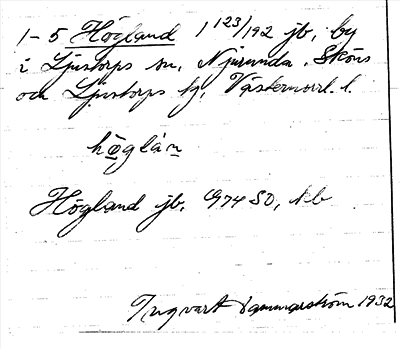 1-5 Högland 1 123/192 jb, by
i Ljustorps sn, Njurunda, Sköns
och Ljustorps tg, Västernorrl. l.
höglán
Högland jb, 974 SO, kb
Ingvart Dammarström 1932